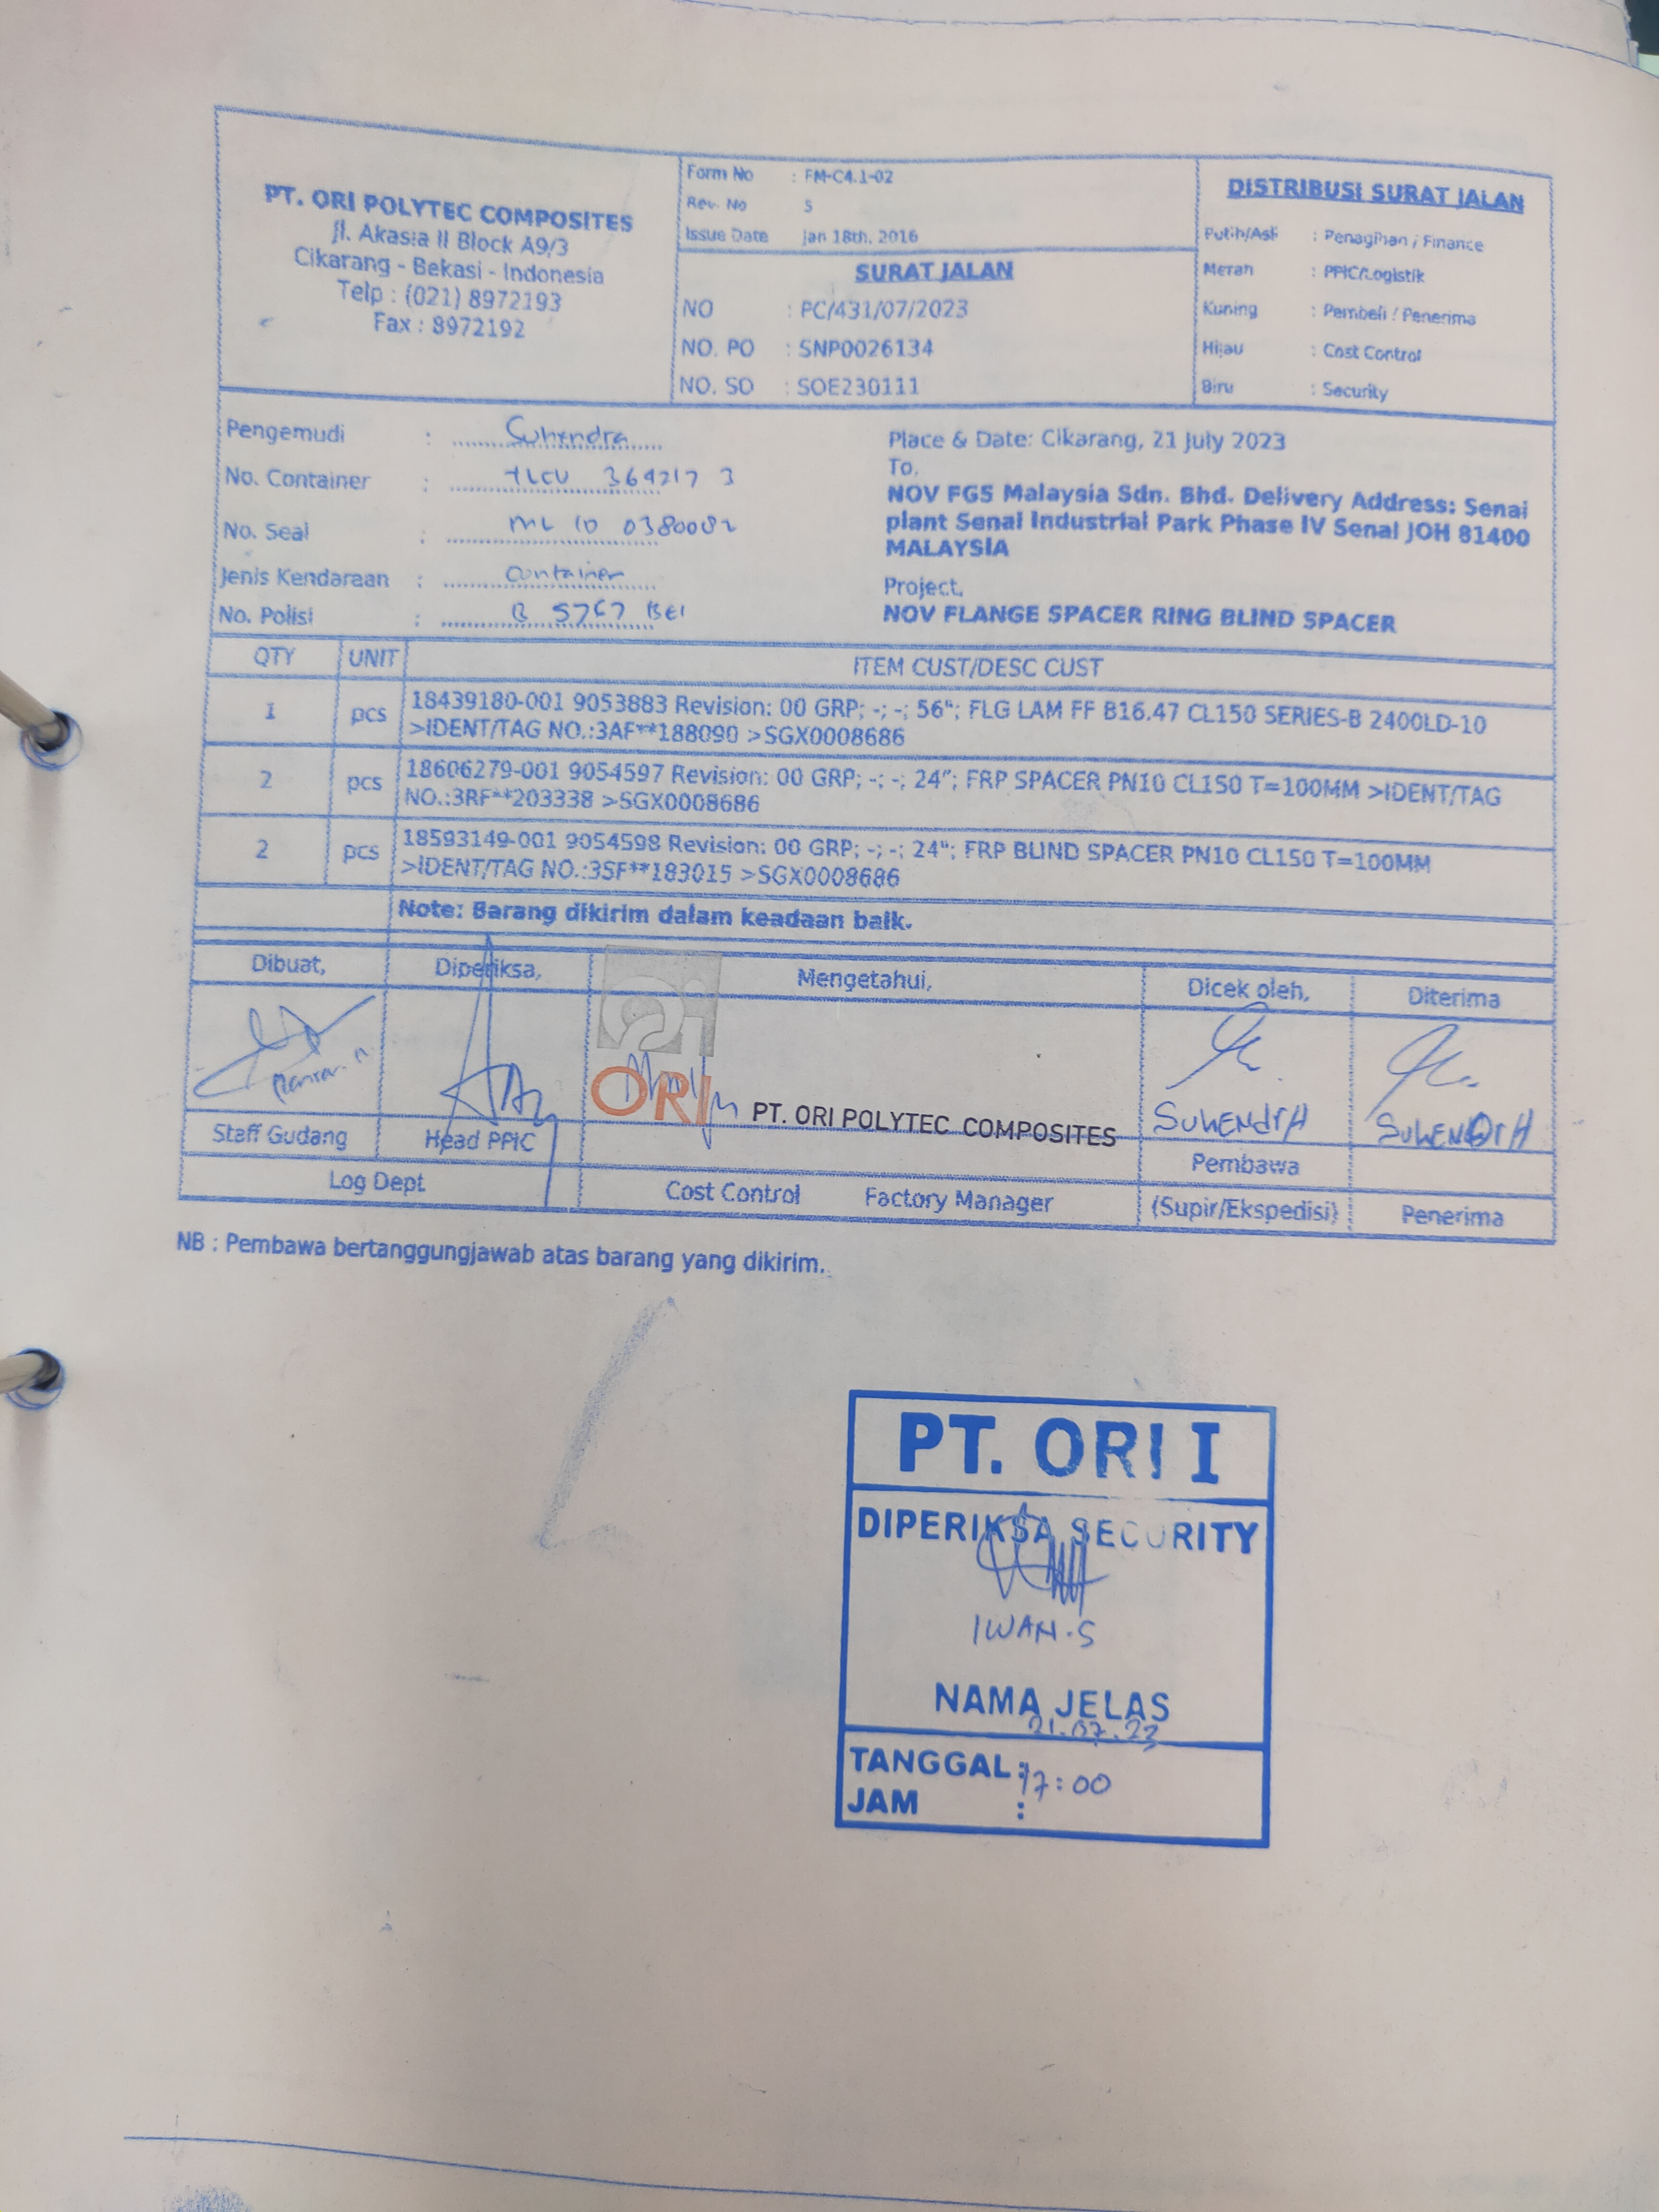 PT. ORI POLYTEC COMPOSITES
Jl. Akasia II Block A9/3
Cikarang - Bekasi - Indonesia
Telp : (021) 8972193
Fax : 8972192
Form No : FM-C4.1-02
Rev. No 5
Issue Date Jan 18th, 2016
SURAT JALAN
NO : PC/431/07/2023
NO. PO : SNP0026134
NO. SO : SOE230111
DISTRIBUSI SURAT JALAN
Putih/Asli : Penagihan / Finance
Merah : PPIC/Logistik
Kuning : Pembeli / Penerima
Hijau : Cost Control
Biru : Security
Pengemudi : Suhendra
No. Container : TLCU 364217 3
No. Seal : ML ID 0380082
Jenis Kendaraan : Container
No. Polisi : B
Place & Date: Cikarang, 21 July 2023
To,
NOV FGS Malaysia Sdn. Bhd. Delivery Address: Senai
plant Senai Industrial Park Phase IV Senai JOH 81400
MALAYSIA
Project,
NOV FLANGE SPACER RING BLIND SPACER
QTY UNIT ITEM CUST/DESC CUST
1 pcs 18439180-001 9053883 Revision: 00 GRP; -; -; 56"; FLG LAM FF B16.47 CL150 SERIES-B 2400LD-10
>IDENT/TAG NO.:3AF**188090 >SGX0008686
2 pcs 18606279-001 9054597 Revision: 00 GRP; -; -; 24"; FRP SPACER PN10 CL150 T=100MM >IDENT/TAG
NO.:3RF**203338 >SGX0008686
2 pcs 18593149-001 9054598 Revision: 00 GRP; -; -; 24"; FRP BLIND SPACER PN10 CL150 T=100MM
>IDENT/TAG NO.:3SF**183015 >SGX0008686
Note: Barang dikirim dalam keadaan baik.
Dibuat, Diperiksa, Mengetahui, Dicek oleh, Diterima
ORI PT. ORI POLYTEC COMPOSITES
SUHENDRA SUHENDRA
Staff Gudang Head PPIC Pembawa
Log Dept Cost Control Factory Manager (Supir/Ekspedisi) Penerima
NB : Pembawa bertanggungjawab atas barang yang dikirim.
PT. ORI I
DIPERIKSA SECURITY
IWAN.S
NAMA JELAS
21.07.23
TANGGAL : 17:00
JAM :